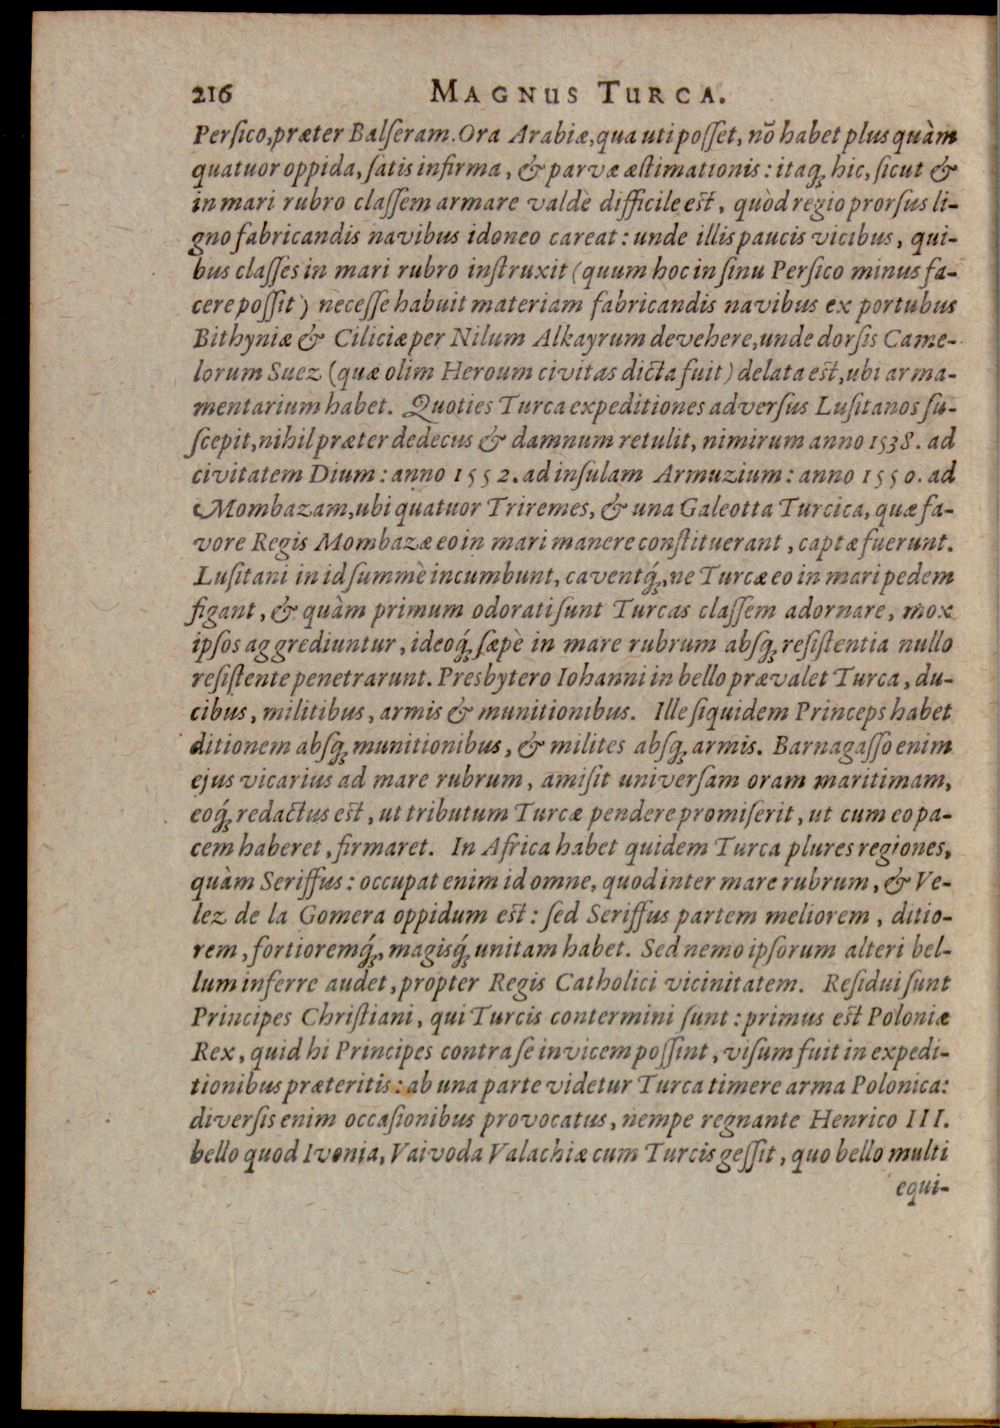 216 MAGNUS TURCA.
Perſico,præter Balſeram. Ora Arabiæ,qua uti poſſet, nõ habet plus quàm
quatuor oppida, ſatis infirma, & parvæ æſtimationis: itaq́ꝫ hic, ſicut &
in mari rubro claſſem armare valdè difficile eſt, quòd regio prorſus li-
gno fabricandis navibus idoneo careat: unde illis paucis vicibus, qui-
bus claſſes in mari rubro inſtruxit (quum hoc in ſinu Perſico minus fa-
cere poſſit) neceſſe habuit materiam fabricandis navibus ex portubus
Bithyniæ & Ciliciæ per Nilum Alkayrum devehere,unde dorſis Came-
lorum Suez (quæ olim Heroum civitas dicta fuit) delata eſt,ubi arma-
mentarium habet. Quoties Turca expeditiones adverſus Luſitanos ſu-
ſcepit,nihil præter dedecus & damnum retulit, nimirum anno 1538. ad
civitatem Dium: anno 1552. ad inſulam Armuzium: anno 1550. ad
Mombazam,ubi quatuor Triremes, & una Galeotta Turcica, quæ fa-
vore Regis Mombazæ eo in mari manere conſtituerant, captæ fuerunt.
Luſitani in id ſummè incumbunt, caventq́ꝫ, ne Turcæ eo in mari pedem
figant, & quàm primum odorati ſunt Turcas claſſem adornare, mox
ipſos aggrediuntur, ideoq́ꝫ ſæpè in mare rubrum abſqꝫ reſiſtentia nullo
reſiſtente penetrarunt. Presbytero Iohanni in bello prævalet Turca, du-
cibus, militibus, armis & munitionibus. Ille ſiquidem Princeps habet
ditionem abſqꝫ munitionibus, & milites abſqꝫ armis. Barnagaſſo enim
ejus vicarius ad mare rubrum, amiſit univerſam oram maritimam,
eoq́ꝫ redactus eſt, ut tributum Turcæ pendere promiſerit, ut cum eo pa-
cem haberet, firmaret. In Africa habet quidem Turca plures regiones,
quàm Seriffus: occupat enim id omne, quod inter mare rubrum, & Ve-
lez de la Gomera oppidum eſt: ſed Seriffus partem meliorem, ditio-
rem, fortioremq́ꝫ, magisq́ꝫ unitam habet. Sed nemo ipſorum alteri bel-
lum inferre audet, propter Regis Catholici vicinitatem. Reſidui ſunt
Principes Chriſtiani, qui Turcis contermini ſunt: primus eſt Poloniæ
Rex, quid hi Principes contra ſe invicem poſſint, viſum fuit in expedi-
tionibus præteritis: ab una parte videtur Turca timere arma Polonica:
diverſis enim occaſionibus provocatus, nempe regnante Henrico III.
bello quod Ivonia, Vaivoda Valachiæ cum Turcis geſſit, quo bello multi
equi-